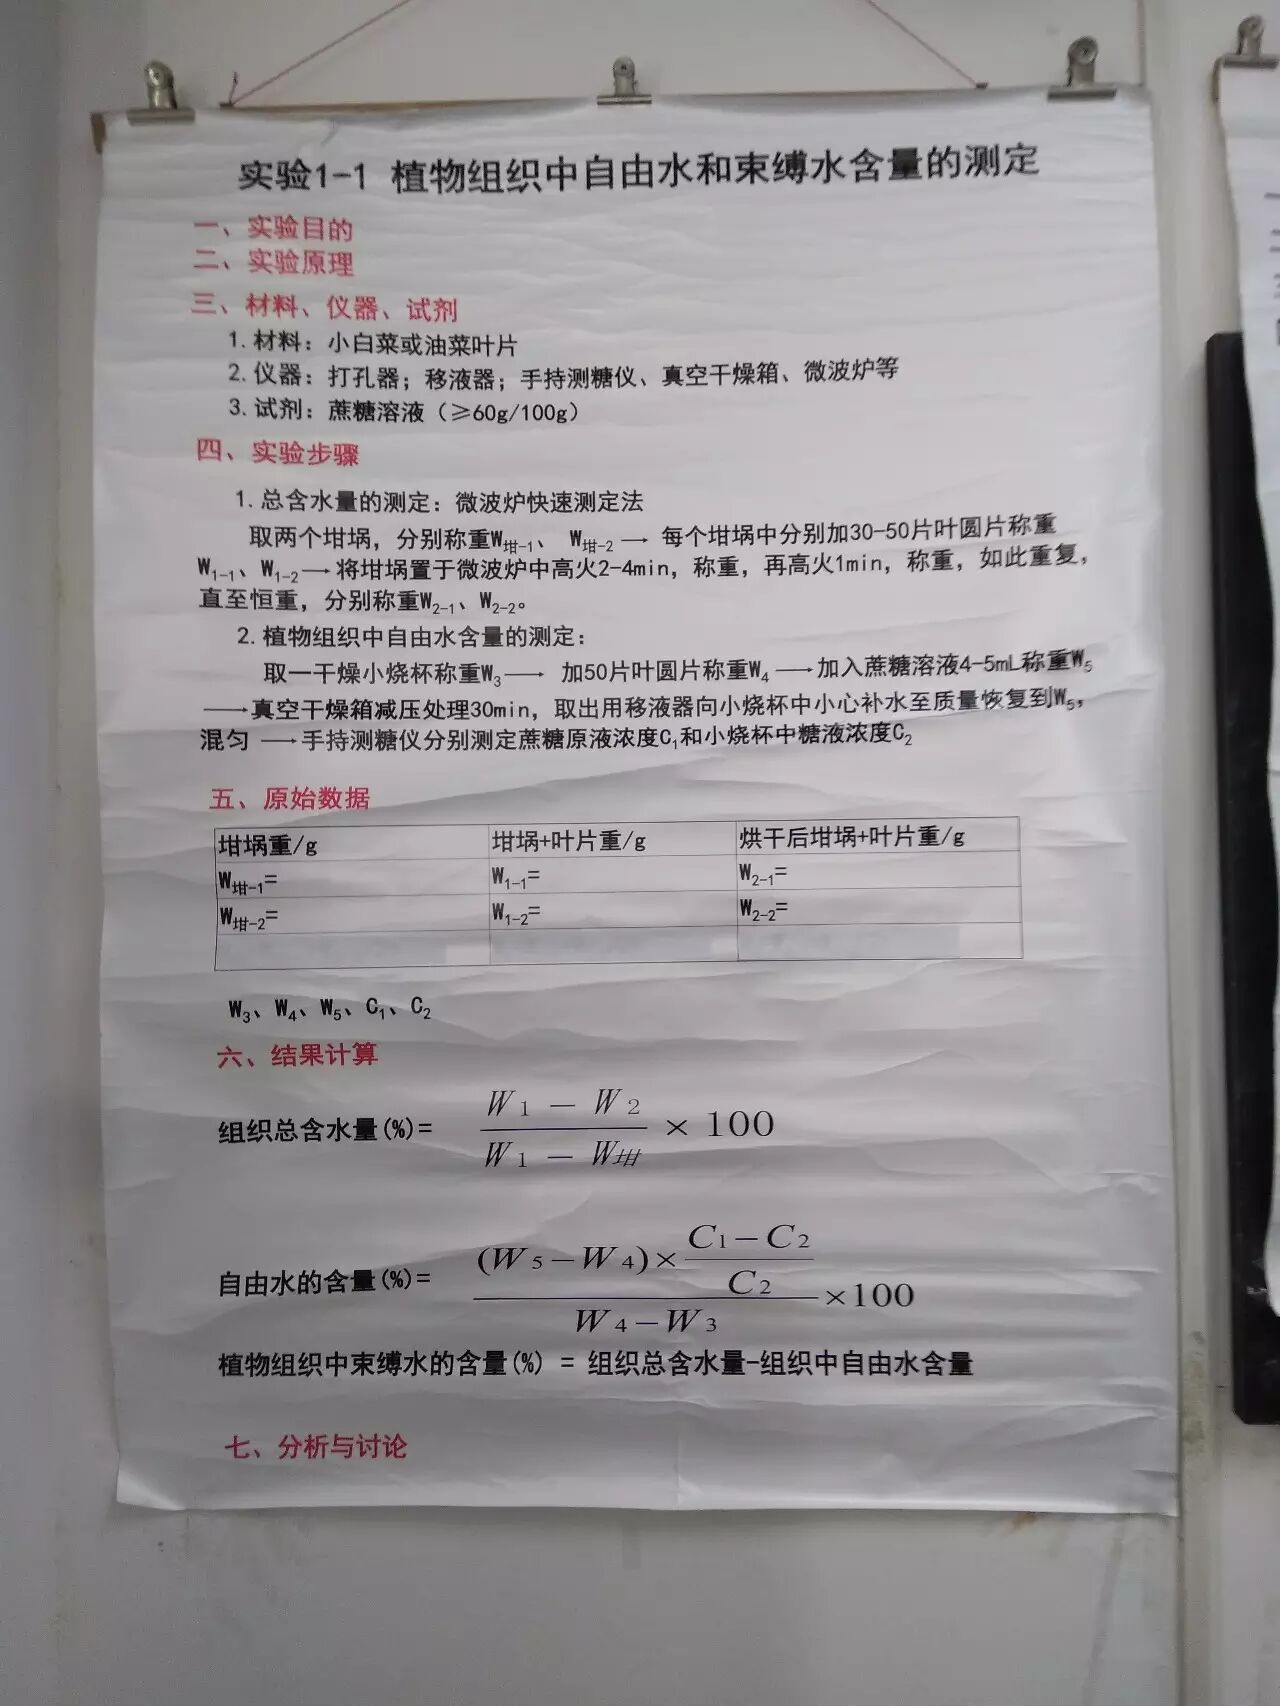 实验1-1 植物组织中自由水和束缚水含量的测定
一、实验目的
二、实验原理
三、材料、仪器、试剂
1.材料：小白菜或油菜叶片
2.仪器：打孔器；移液器；手持测糖仪、真空干燥箱、微波炉等
3.试剂：蔗糖溶液（≥60g/100g）
四、实验步骤
1.总含水量的测定：微波炉快速测定法
取两个坩埚，分别称重W坩-1、 W坩-2 → 每个坩埚中分别加30-50片叶圆片称重
W1-1、W1-2→将坩埚置于微波炉中高火2-4min，称重，再高火1min，称重，如此重复，
直至恒重，分别称重W2-1、W2-2。
2.植物组织中自由水含量的测定：
取一干燥小烧杯称重W3→ 加50片叶圆片称重W4→加入蔗糖溶液4-5mL称重W5
→真空干燥箱减压处理30min，取出用移液器向小烧杯中小心补水至质量恢复到W5，
混匀 →手持测糖仪分别测定蔗糖原液浓度C1和小烧杯中糖液浓度C2
五、原始数据
坩埚重/g 坩埚+叶片重/g 烘干后坩埚+叶片重/g
W坩-1= W1-1= W2-1=
W坩-2= W1-2= W2-2=
W3、W4、W5、C1、C2
六、结果计算
组织总含水量(%)= (W1－W2)/(W1－W坩) × 100
自由水的含量(%)= ((W5－W4)×(C1－C2)/C2)/(W4－W3) ×100
植物组织中束缚水的含量(%) = 组织总含水量-组织中自由水含量
七、分析与讨论